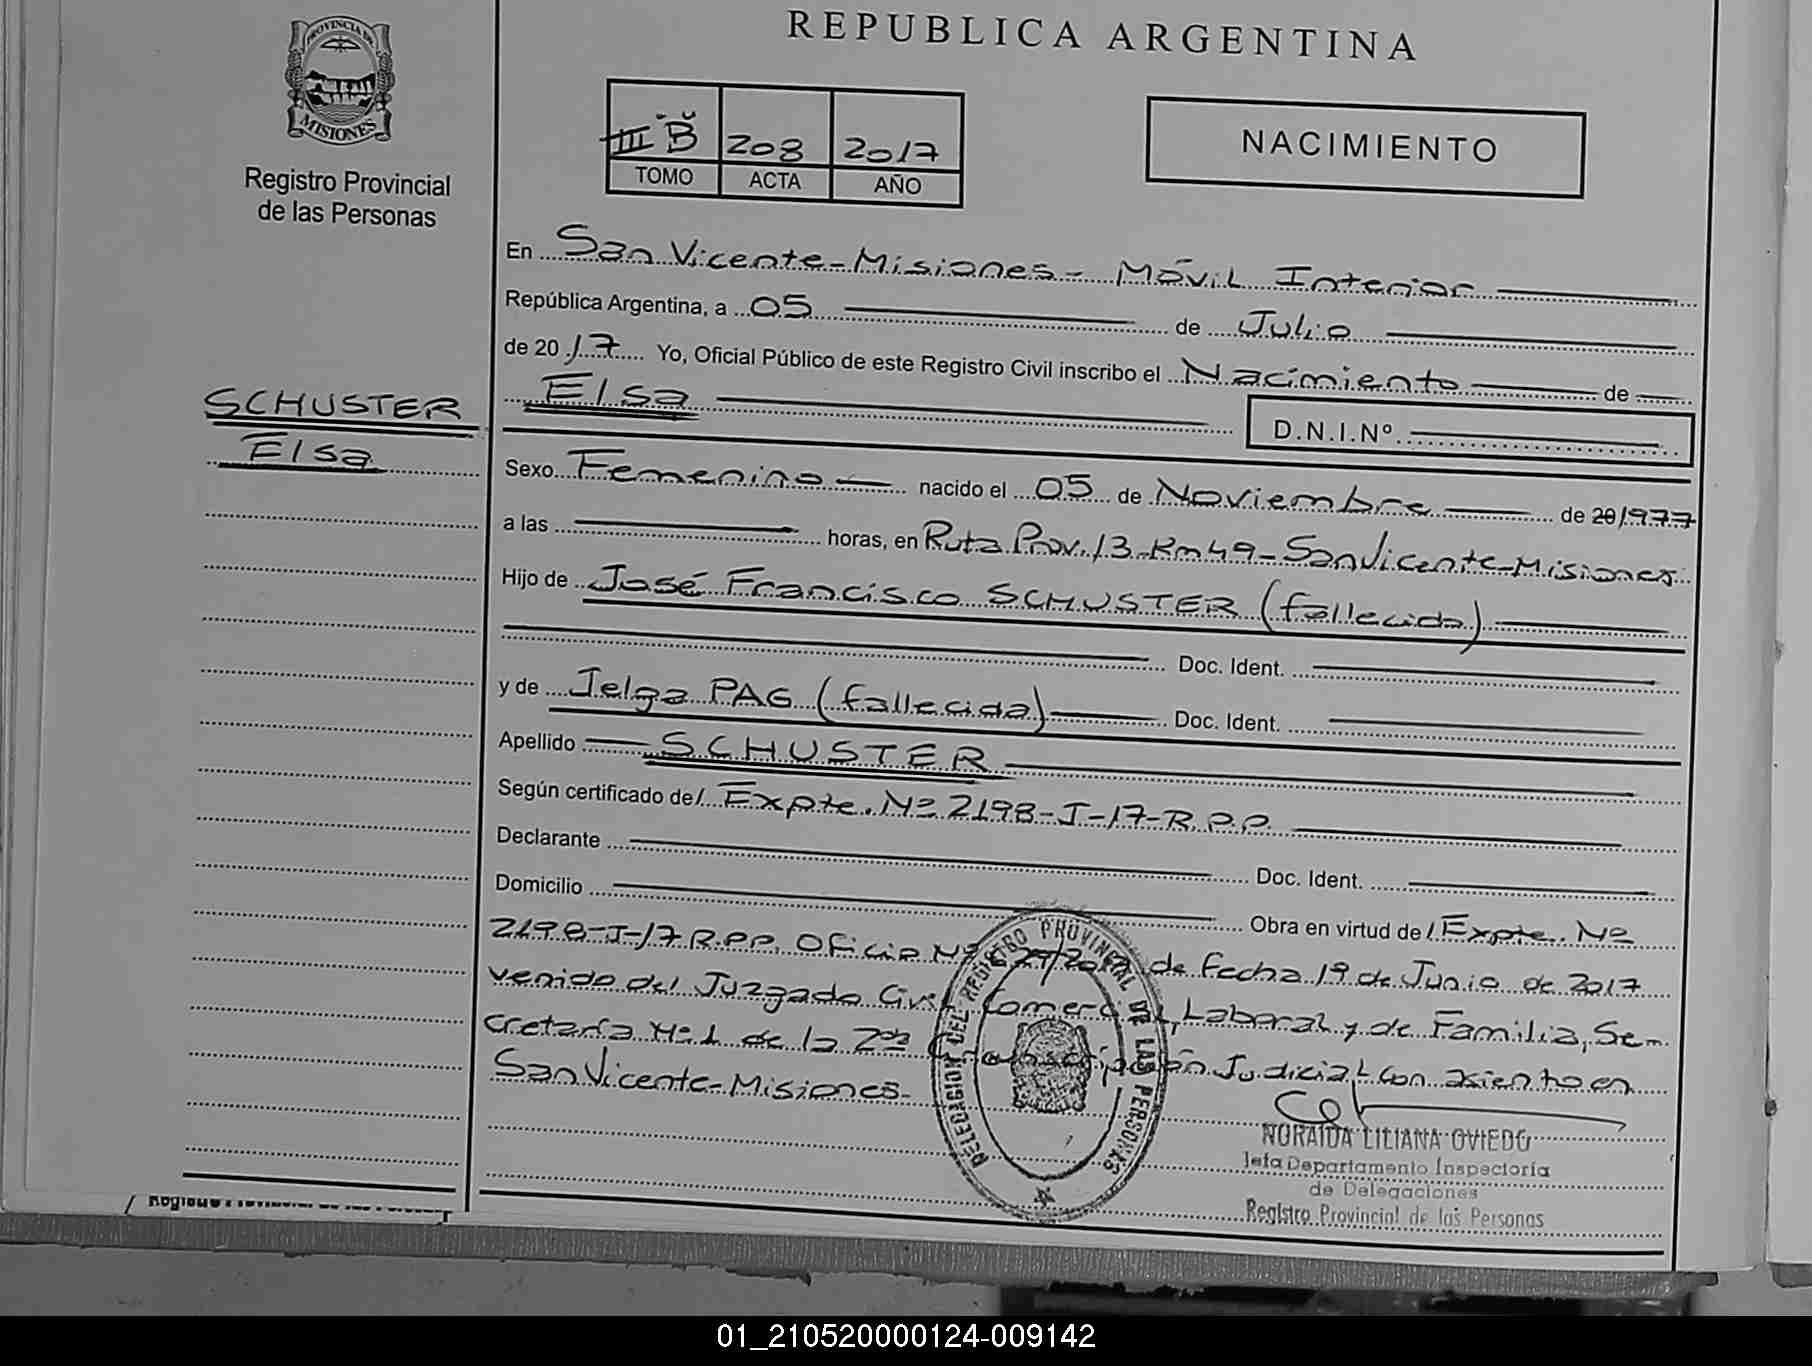 REPUBLICA ARGENTINA
PROVINCIA DE
MISIONES
Registro Provincial
de las Personas
III B 208 2017
TOMO ACTA AÑO
NACIMIENTO
En San Vicente-Misiones- Móvil Interior
República Argentina, a 05 de Julio
de 2017 Yo, Oficial Público de este Registro Civil inscribo el Nacimiento de
SCHUSTER
Elsa
Elsa
D.N.I.Nº
Sexo Femenino nacido el 05 de Noviembre de 20/1977
a las horas, en Ruta Prov. 13-Km49-San Vicente-Misiones
Hijo de José Francisco SCHUSTER (fallecido)
Doc. Ident.
y de Jelga PAG (fallecida) Doc. Ident.
Apellido SCHUSTER
Según certificado de/ Expte. Nº 2198-J-17-R.P.P.
Declarante Doc. Ident.
Domicilio Obra en virtud de/ Expte. Nº
2198-J-17 R.P.P. Oficio Nº de fecha 19 de Junio de 2017
venido del Juzgado Civil, Comercial, Laboral y de Familia, Se-
cretaría Nº 1 de la 2da Circunscripción Judicial con asiento en
San Vicente-Misiones-
DELEGACION DEL REGISTRO PROVINCIAL DE LAS PERSONAS
NORAIDA LILIANA OVIEDO
Jefa Departamento Inspectoría
de Delegaciones
Registro Provincial de las Personas
01_210520000124-009142